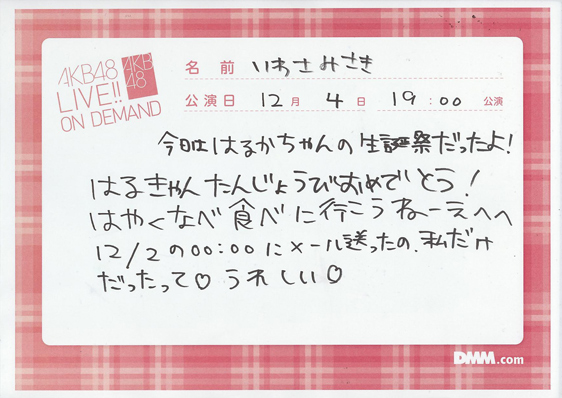 AKB48
LIVE!!
ON DEMAND
AKB
48
名前 いわさみさき
公演日 12月 4日 19:00 公演
今日ははるかちゃんの生誕祭だったよ!
はるきゃんたんじょうびおめでとう!
はやくなべ食べに行こうねーえへへ
12/2の00:00にメール送ったの、私だけ
だったって♡うれしい♡
DMM.com